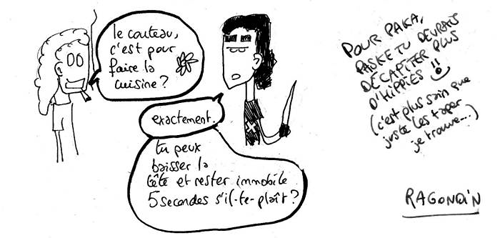 le couteau,
c'est pour
faire la
cuisine ?
exactement.
tu peux
baisser la
tête et rester immobile
5 secondes s'il-te-plaît ?
POUR PAKA,
PASKE TU DEVRAIS
DÉCAPITER PLUS
D'HIPPIES
(c'est plus sain que
juste les taper
je trouve...)
RAGONQIN